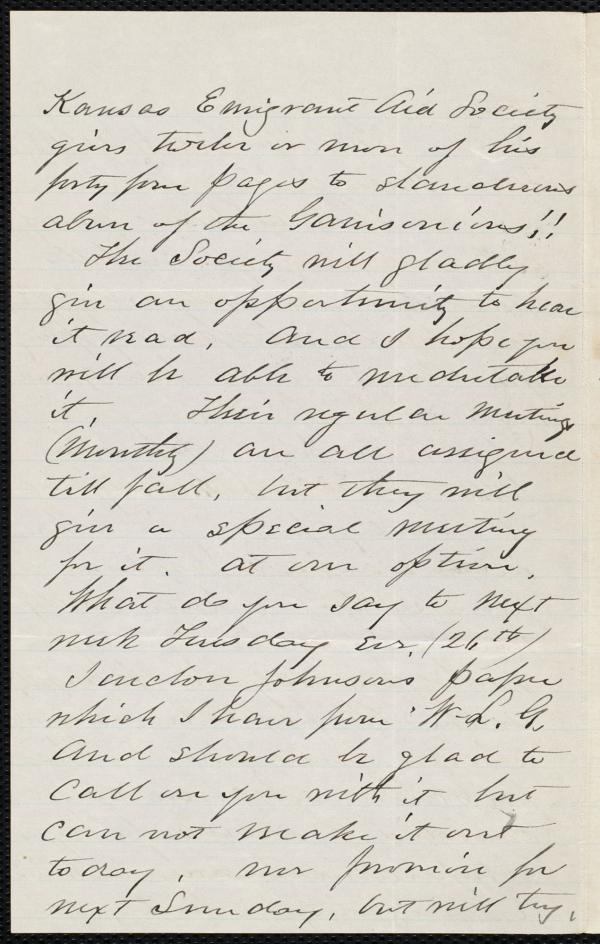 Kansas Emigrant Aid Society
gives twelve or more of his
forty four pages to slanderous
abuse of the Garrisonians!!
The Society will gladly
give an opportunity to hear
it read, And I hope you
will be able to undertake
it. Their regular meetings
(Monthly) are all assigned
till fall, but they will
give a special meeting
for it. at our option.
What do you say to next
week Tuesday Eve. (26th)
I enclose Johnson's paper
which I have from W. L. G.
And should be glad to
call on you with it but
can not make it out
today, nor promise for
next Sunday, but will try,